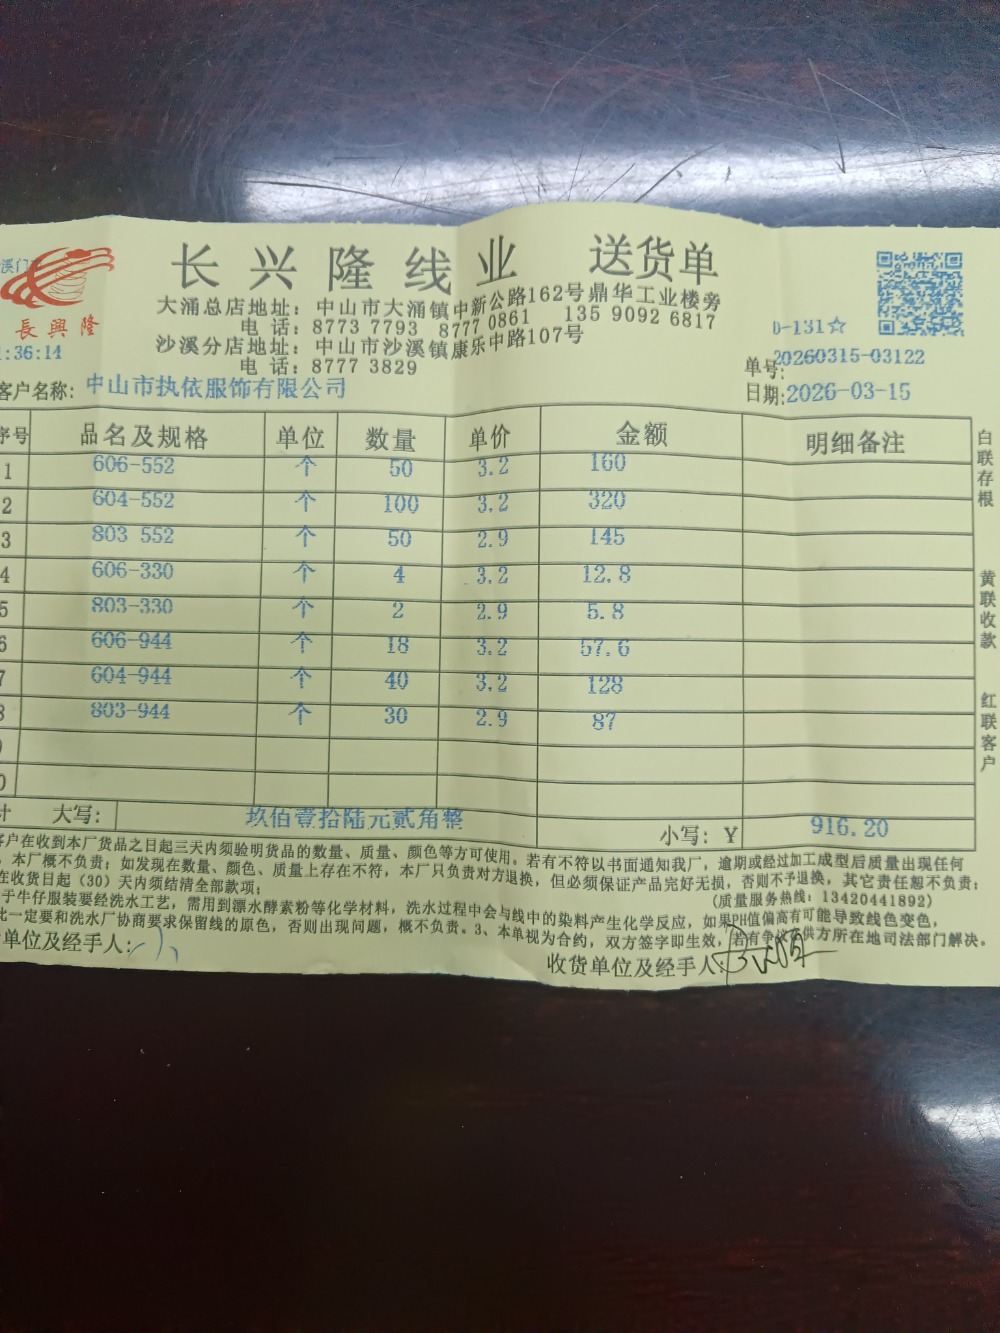 长兴隆线业 送货单
大涌总店地址：中山市大涌镇中新公路162号鼎华工业楼旁
电 话：8773 7793 8777 0861 135 9092 6817
沙溪分店地址：中山市沙溪镇康乐中路107号
电 话：8777 3829
長興隆
:36:14
0-131☆
单号:20260315-03122
客户名称: 中山市执依服饰有限公司
日期:2026-03-15
序号 品名及规格 单位 数量 单价 金额 明细备注
1 606-552 个 50 3.2 160
2 604-552 个 100 3.2 320
3 803 552 个 50 2.9 145
4 606-330 个 4 3.2 12.8
5 803-330 个 2 2.9 5.8
6 606-944 个 18 3.2 57.6
7 604-944 个 40 3.2 128
8 803-944 个 30 2.9 87
计 大写: 玖佰壹拾陆元贰角整 小写: Y 916.20
白联存根 黄联收款 红联客户
客户在收到本厂货品之日起三天内须验明货品的数量、质量、颜色等方可使用。若有不符以书面通知我厂，逾期或经过加工成型后质量出现任何
，本厂概不负责；如发现在数量、颜色、质量上存在不符，本厂只负责对方退换，但必须保证产品完好无损，否则不予退换，其它责任恕不负责；
在收货日起（30）天内须结清全部款项；
(质量服务热线：13420441892)
于牛仔服装要经洗水工艺，需用到漂水酵素粉等化学材料，洗水过程中会与线中的染料产生化学反应，如果PH值偏高有可能导致线色变色，
此一定要和洗水厂协商要求保留线的原色，否则出现问题，概不负责。3、本单视为合约，双方签字即生效，若有争议在供方所在地司法部门解决。
单位及经手人:
收货单位及经手人: